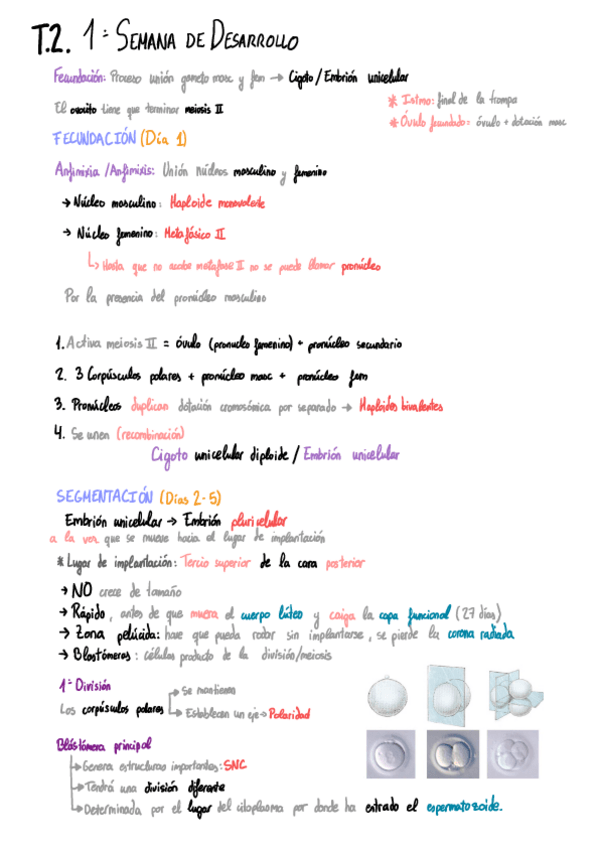 T.2. 1ª SEMANA DE DESARROLLO
Fecundación: Proceso unión gameto masc y fem → Cigoto / Embrión unicelular
El ovocito tiene que terminar meiosis II
* Istmo: final de la trompa
* Óvulo fecundado: óvulo + dotación masc
FECUNDACIÓN (Día 1)
Anfimixia /Anfimixis: Unión núcleos masculino y femenino
→ Núcleo masculino: Haploide monovalente
→ Núcleo femenino: Metafásico II
↳ Hasta que no acabe metafase II no se puede llamar pronúcleo
Por la presencia del pronúcleo masculino
1. Activa meiosis II = óvulo (pronucleo femenino) + pronúcleo secundario
2. 3 Corpúsculos polares + pronúcleo masc + pronúcleo fem
3. Pronúcleos duplican dotación cromosómica por separado → Haploides bivalentes
4. Se unen (recombinación)
Cigoto unicelular diploide / Embrión unicelular
SEGMENTACIÓN (Días 2-5)
Embrión unicelular → Embrión pluricelular
a la vez que se mueve hacia el lugar de implantación
* Lugar de implantación: Tercio superior de la cara posterior
→ NO crece de tamaño
→ Rápido, antes de que muera el cuerpo lúteo y caiga la capa funcional (27 días)
→ Zona pelúcida: hace que pueda rodar sin implantarse, se pierde la corona radiada
→ Blastómeros: células producto de la división/meiosis
1ª División
Los corpúsculos polares
→ Se mantienen
→ Establecen un eje → Polaridad
Blastómera principal
→ Genera estructuras importantes: SNC
→ Tendrá una división diferente
→ Determinada por el lugar del citoplasma por donde ha entrado el espermatozoide.